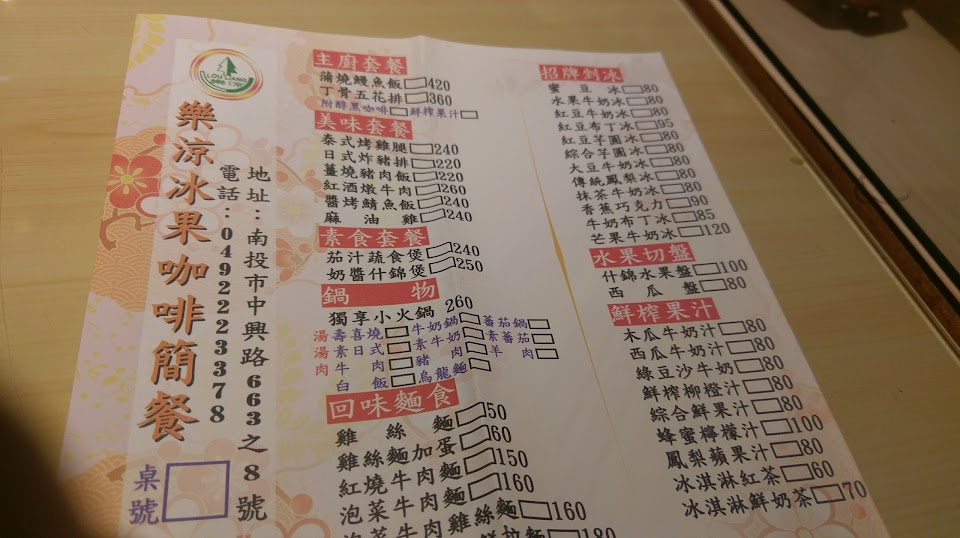 LOU LIANG
樂涼冰果咖啡簡餐
電話:0492223378
地址:南投市中興路663之8號
桌號
主廚套餐
蒲燒鰻魚飯 420
丁骨五花排 360
附醇黑咖啡 鮮榨果汁
美味套餐
泰式烤雞腿 240
日式炸豬排 220
薑燒豬肉飯 220
紅酒燉牛肉 260
醬烤鯖魚飯 240
麻油雞 240
素食套餐
茄汁蔬食煲 240
奶醬什錦煲 250
鍋物
獨享小火鍋 260
湯 壽喜燒 牛奶鍋 蕃茄鍋
湯 素日式 素牛奶 素蕃茄
肉 牛肉 豬肉 羊肉
白飯 烏龍麵
回味麵食
雞絲麵 50
雞絲麵加蛋 60
紅燒牛肉麵 150
泡菜牛肉麵 160
泡菜牛肉雞絲麵 160
180
招牌剉冰
蜜豆冰 80
水果牛奶冰 80
紅豆牛奶冰 80
紅豆布丁冰 95
紅豆芋圓冰 80
綜合芋圓冰 80
大豆牛奶冰 80
傳統鳳梨冰 80
抹茶牛奶冰 80
香蕉巧克力 90
牛奶布丁冰 85
芒果牛奶冰 120
水果切盤
什錦水果盤 100
西瓜盤 80
鮮榨果汁
木瓜牛奶汁 80
西瓜牛奶汁 80
綠豆沙牛奶 80
鮮榨柳橙汁 80
綜合鮮果汁 80
蜂蜜檸檬汁 100
鳳梨蘋果汁 80
冰淇淋紅茶 60
冰淇淋鮮奶茶 70